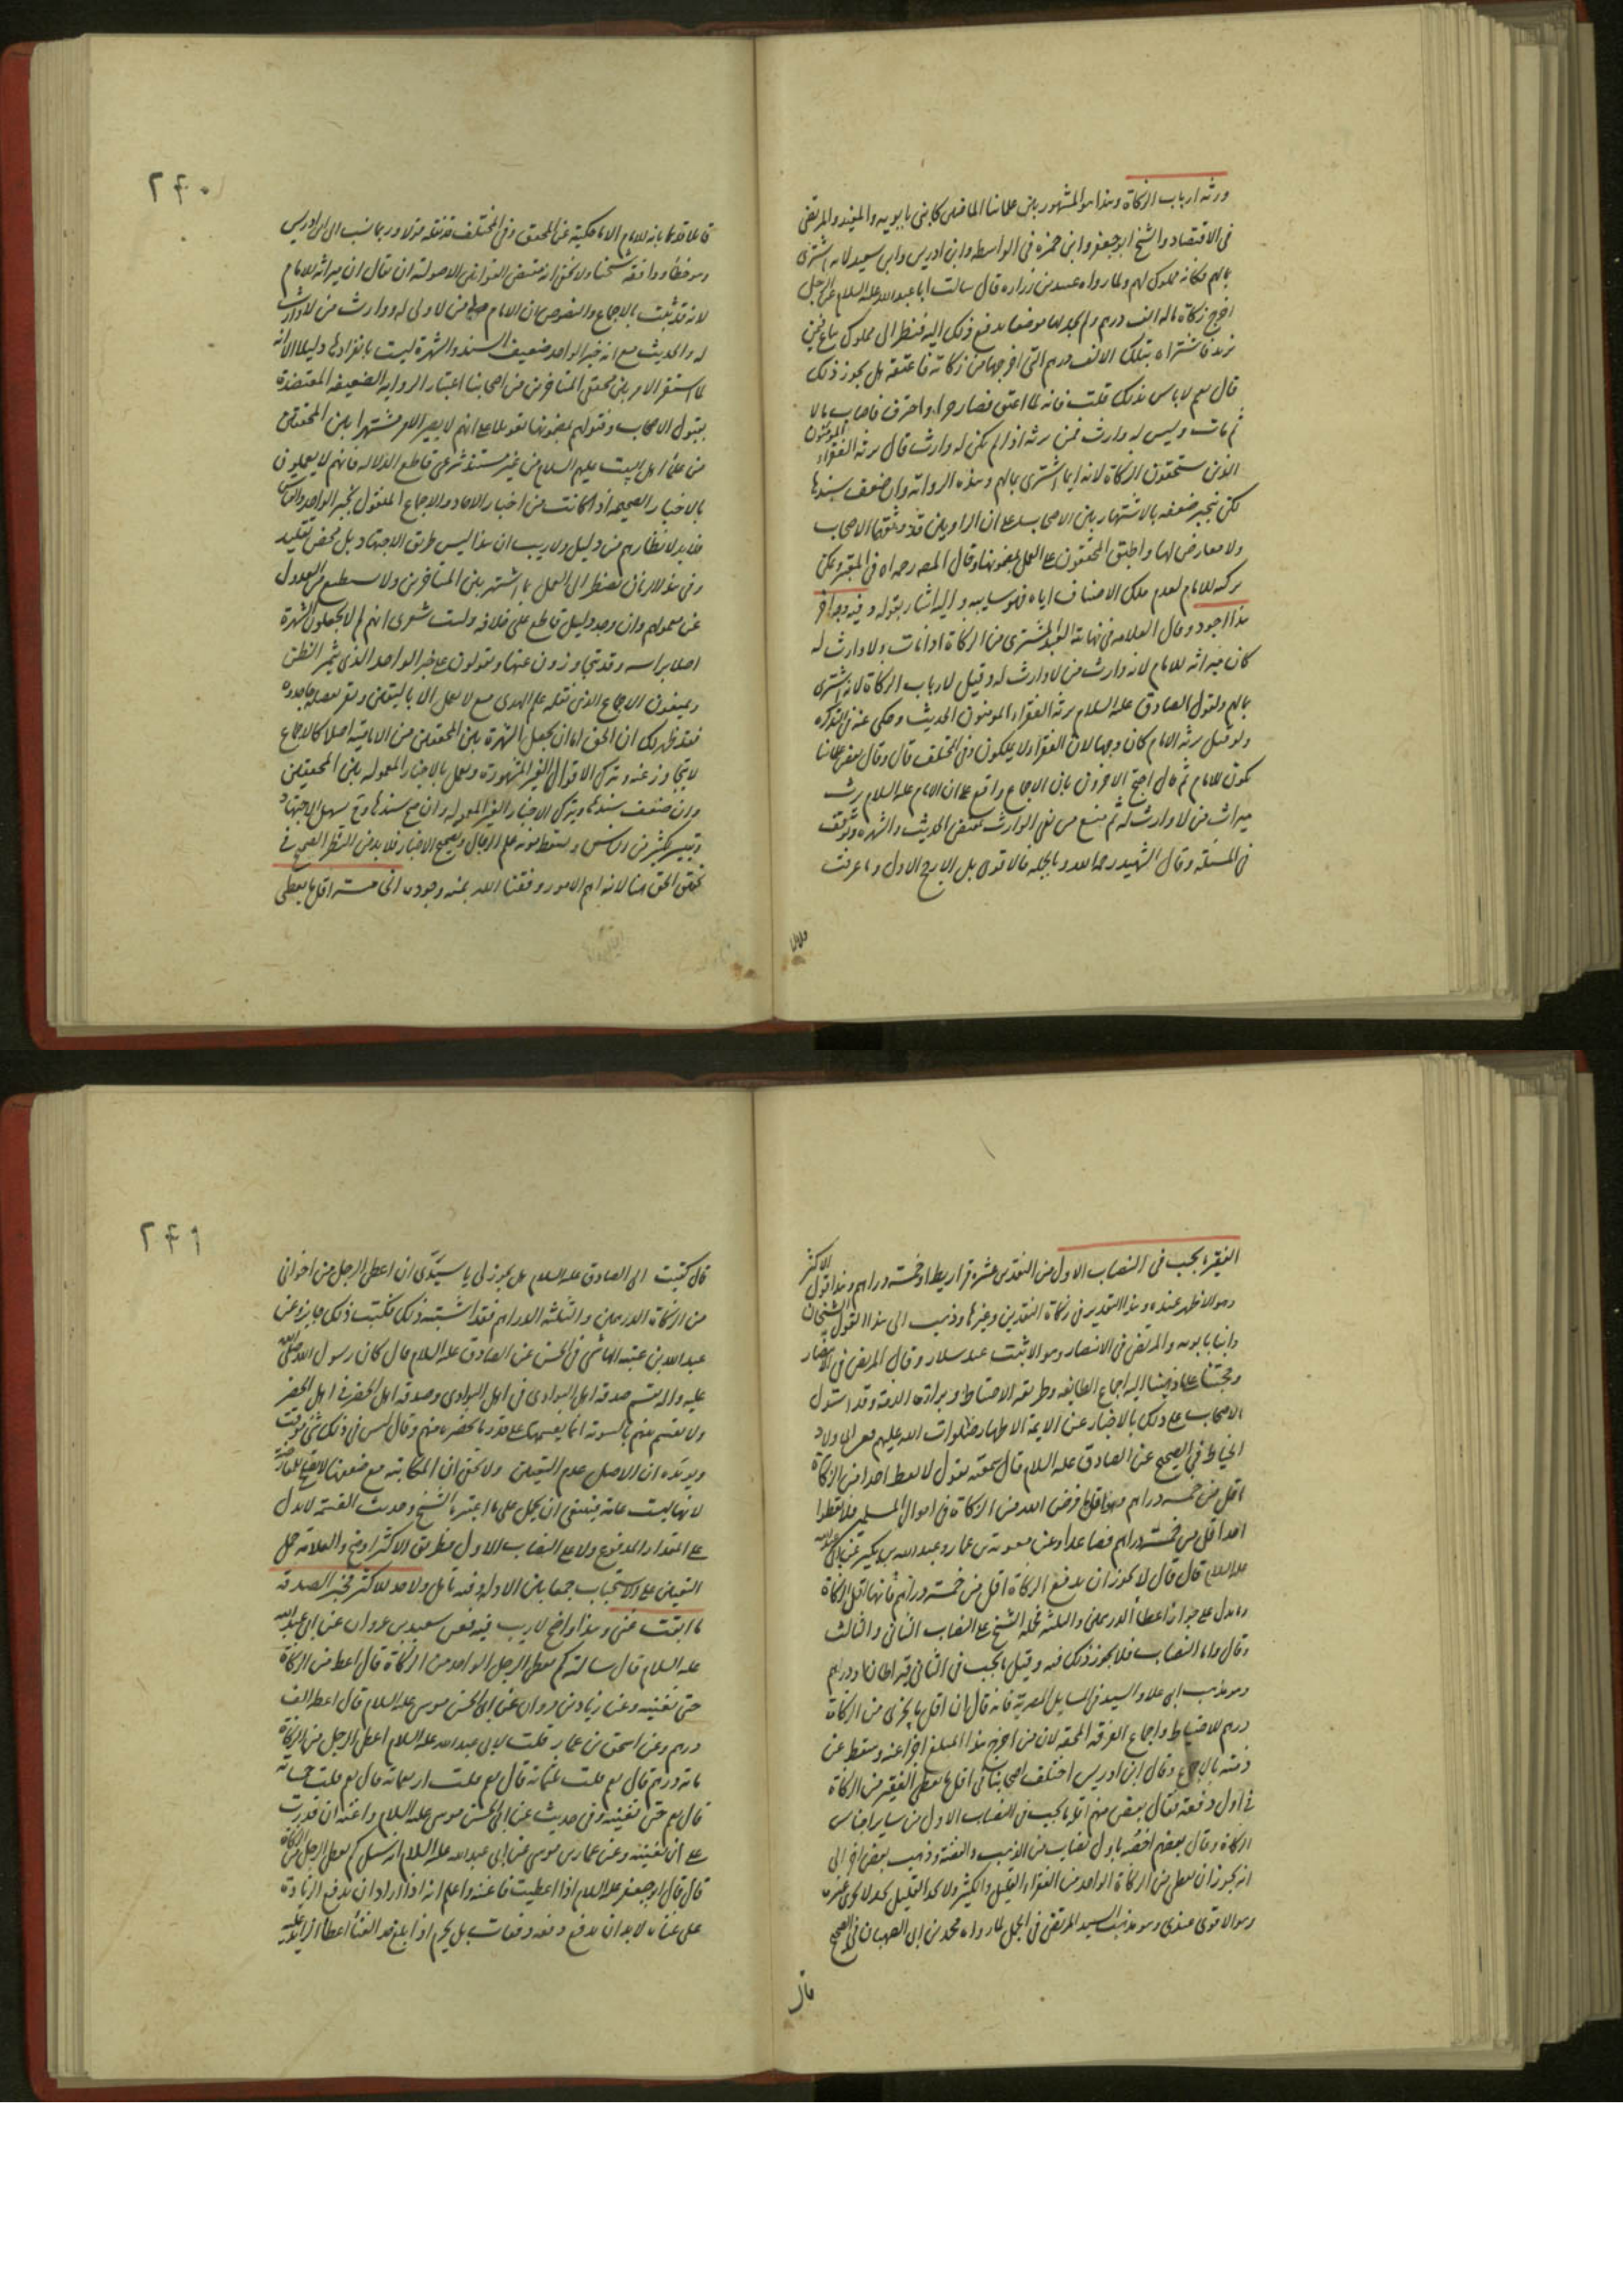 ورثه ارباب الزكاة وهذا هو المشهور بين علمائنا الماضين كابني بابويه والمفيد والمرتضى
في الاقتصاد والشيخ ابو جعفر وابن حمزه في الواسطه وابن ادريس وابن سعيد لانه اشترى
بمالهم فكانه مملوك لهم ولما رواه عبيد بن زراره قال سالت ابا عبدالله عليه السلام عن رجل
اخرج زكاة ماله الف درهم ولم يجد لها موضعا يدفع ذلك اليه فنظر الى مملوك يباع فيمن
يزيد فاشتراه بتلك الالف درهم التي اخرجها من زكاته فاعتقه هل يجوز ذلك
قال نعم لا باس بذلك قلت فانه لما اعتق فصار حرا واحترف فاصاب مالا
ثم مات وليس له وارث فمن يرثه اذا لم يكن له وارث قال يرثه الفقراء المومنون
الذين يستحقون الزكاة لانه انما اشترى بمالهم وهذه الرواية وان ضعف سندها
لكن ينجبر ضعفه بالاشتهار بين الاصحاب على ان الراويين قد وثقهما الاصحاب
ولا معارض لها واطبق المحققون على العمل بمضمونها وقال المص رحمه الله في المعتبر ويمكن
تركه للامام لعدم ملك الاصناف اياه فهو سايبه واليه اشار بقوله وفيه وجه اخر
هذا اجود وقال العلامه في نهاية العبد المشترى من الزكاة اذا مات ولا وارث له
كان ميراثه للامام لانه وارث من لا وارث له وقيل لارباب الزكاة لانه اشترى
بمالهم ولقول الصادق عليه السلام يرثه الفقراء المومنون الحديث وحكى عنه في التذكره
ولو قيل يرثه الامام كان وجها لان الفقراء لا يملكون وفي المختلف قال وقال بعض علمائنا
يكون للامام ثم قال احتج الاخرون بان الاجماع واقع على ان الامام عليه السلام يرث
ميراث من لا وارث له ثم منع من نفي الوارث بمقتضى الحديث والشهره وتوقف
في المسئلة وقال الشهيد رحمه الله وبالجمله فالاقوى بل الارجح الاول وما عرفت
قائلا قدما بانه للامام الا ما حكيته عن المحقق وفي المختلف قد نقله قولا وربما نسب الى ابن ادريس
وهو خطأ ووافقه شيخنا ولا يخفى انه مقتضى القوانين الاصولية ان يقال ان ميراثه للامام
لانه قد ثبت بالاجماع والنصوص ان الامام ولي من لا ولي له ووارث من لا وارث
له والحديث مع انه خبر الواحد ضعيف السند والشهرة ليست بانفرادها دليلا الا انه
لما استقر الامر بين محققي المتاخرين من اصحابنا اعتبار الرواية الضعيفه المعتضدة
بقبول الاصحاب وفتواهم بمضمونها تعويلا على انهم لا يصير الامر مشتهرا بين المحققين
من علماء اهل البيت عليهم السلام من غير مستند شرعي قاطع الدلاله فانهم لا يعملون
بالاخبار الصحيحه اذا كانت من اخبار الاحاد والاجماع المنقول بخبر الواحد والقياس
فلا بد لانظارهم من دليل ولا ريب ان هذا ليس طريق الاجتهاد بل محض تقليد
وفي هذه الازمان نضطر الى العمل بما اشتهر بين المتاخرين ولا نستطيع من العدول
عن معمولهم وان وجد دليل قاطع على خلافه وليت شعري انهم لم لا يجعلون الشهرة
اصلا براسه وقد يتجاوزون عنها ويقولون على خبر الواحد الذي يثمر الظن
فقد ظهر لك ان الحق اما ان يجعل الشهرة بين المحققين من الامامية اصلا كالاجماع
لا يتجاوز عنه ويترك الاقوال الغير المشهورة ويعمل بالاخبار المعمولة بين المحققين
وان ضعف سندها ويترك الاخبار الغير المعمولة وان صح سندها وح يسهل الاجتهاد
ويتيسر لكثير من الناس ويسقط مؤنه علم الرجال وتصحيح الاخبار فلا بد من النظر الصحيح في
تحقيق الحق هنا لانه اهم الامور وفقنا الله بمنه وجوده الخامسة اقل ما يعطى
٢٤٠
الفقير ما يجب في النصاب الاول من النقدين عشرة قراريط او خمسة دراهم وهذا قول الاكثر
وهو الاظهر عنده وهذا التقدير في زكاة النقدين وغيرها وذهب الى هذا القول الشيخان
وابنا بابويه والمرتضى في الانتصار وهو الاثبت عند سلار وقال المرتضى في الانتصار
وحجتنا على ما ذهبنا اليه اجماع الطائفه وطريقه الاحتياط وبراءة الذمة وقد استدل
الاصحاب على ذلك بالاخبار عن الايمة الاطهار صلوات الله عليهم فعن ابي ولاد
الحناط في الصحيح عن الصادق عليه السلام قال سمعته يقول لا يعطى احد من الزكاة
اقل من خمسه دراهم وهو اقل ما فرض الله من الزكاة في اموال المسلمين فلا تعطوا
احدا اقل من خمسة دراهم فصاعدا وعن معوية بن عمار وعبد الله بن بكير عن ابي عبدالله
عليه السلام قال قال لا يجوز ان يدفع الزكاة اقل من خمسة دراهم فانها اقل الزكاة
وما يدل على جواز اعطاء الدرهمين والثلثه فحمله الشيخ على النصاب الثاني والثالث
وقال واما النصاب فلا يجوز ذلك فيه وقيل ما يجب في الثاني قيراطان او درهم
وهو مذهب ابي علي والسيد في المسايل المصرية فانه قال ان اقل ما يجزي من الزكاة
درهم للاحتياط واجماع الفرقه المحقه لان من اخرج هذا المبلغ اجزأ عنه وسقط عن
ذمته بالاجماع وقال ابن ادريس اختلف اصحابنا في اقل ما يعطى الفقير من الزكاة
في اول دفعة فقال بعض منهم اقله ما يجب في النصاب الاول من ساير اجناس
الزكاة وقال بعضهم اخصه باول نصاب من الذهب والفضة وذهب بعض اخر الى
انه يجوز ان يعطى من الزكاة الواحد من الفقراء القليل والكثير ولا يحد القليل بحد لا يجزي غيره
وهو الاقوى عندي وهو مذهب السيد المرتضى في الجمل لما رواه محمد بن ابي الصهبان في الصحيح
قال
قال كتبت الى الصادق عليه السلام هل يجوز لي يا سيدي ان اعطي الرجل من اخواني
من الزكاة الدرهمين والثلثة الدراهم فقد اشتبه ذلك فكتب ذلك جايز وعن
عبدالله بن عتبه الهاشمي في الحسن عن الصادق عليه السلام قال كان رسول الله صلى الله
عليه واله يقسم صدقه اهل البوادي في اهل البوادي وصدقه اهل الحضر في اهل الحضر
ولا يقسم بينهم بالسوية انما يقسمها على قدر ما يحضره منهم وقال ليس في ذلك شيء موقت
ويؤيده ان الاصل عدم التعيين ولا يخفى ان المكاتبة مع ضعفها لا يصلح للمعارضة
لانها ليست عامة فينبغي ان يحمل على ما اعتبره الشيخ وحديث القسمة لا يدل
على المقدار المدفوع ولا على النصاب الاول فطريق الاكثر اوضح والعلامة حمل
التعيين على الاستحباب جمعا بين الادلة وفيه تامل ولا حد للاكثر فخير الصدقه
ما ابقت غنى وهذا واضح لا ريب فيه فعن سعيد بن غزوان عن ابي عبد الله
عليه السلام قال سالته كم يعطى الرجل الواحد من الزكاة قال اعطه من الزكاة
حتى تغنيه وعن زياد بن مروان عن ابي الحسن موسى عليه السلام قال اعطه الف
درهم وعن اسحق بن عمار قلت لابي عبدالله عليه السلام اعطى الرجل من الزكاة
ماة درهم قال نعم قلت مائتين قال نعم قلت اربعمائة قال نعم قلت خمسمائة
قال نعم حتى تغنيه وفي حديث عن ابي الحسن موسى عليه السلام واغنه ان قدرت
على ان تغنيه وعن عمار بن موسى عن ابي عبدالله عليه السلام انه سئل كم يعطى الرجل من الزكاة
قال قال ابو جعفر عليه السلام اذا اعطيت فاغنه واعلم انه اذا اراد ان يدفع الزيادة
على غناه لا بد ان يدفع دفعه ودفعات بل يحرم اذا بلغ حد الغنا اعطاء الزايد عليه
٢٤١